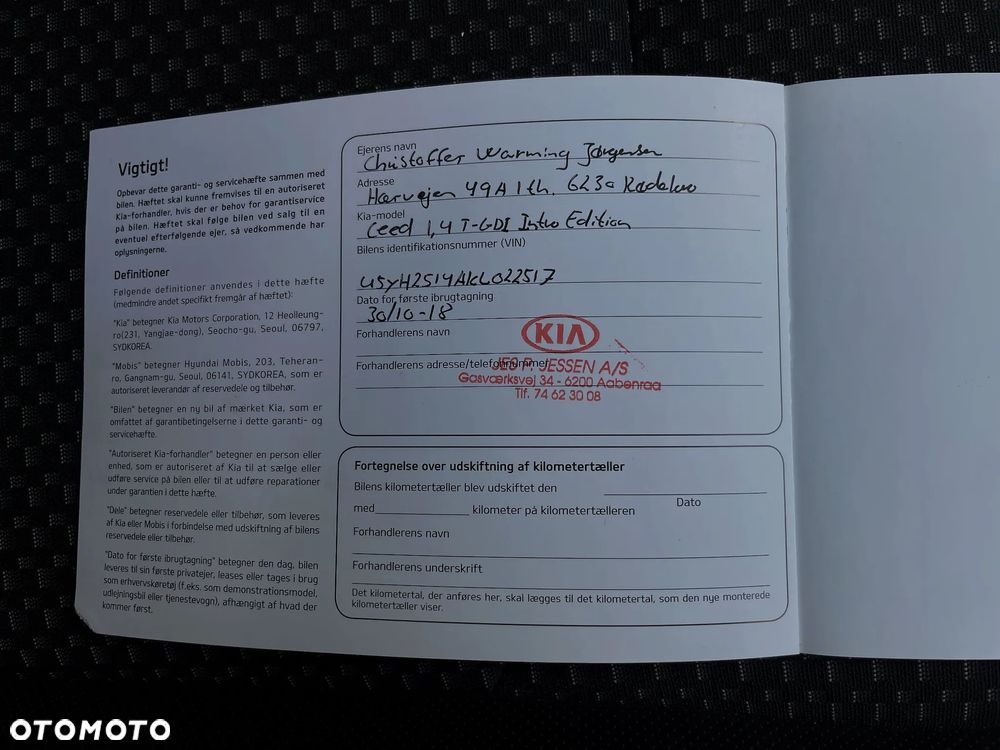 Vigtigt!
Opbevar dette garanti- og servicehæfte sammen med
bilen. Hæftet skal kunne fremvises til en autoriseret
Kia-forhandler, hvis der er behov for garantiservice
på bilen. Hæftet skal følge bilen ved salg til en
eventuel efterfølgende ejer, så vedkommende har
oplysningerne.
Definitioner
Følgende definitioner anvendes i dette hæfte
(medmindre andet specifikt fremgår af hæftet):
"Kia" betegner Kia Motors Corporation, 12 Heolleung-
ro(231, Yangjae-dong), Seocho-gu, Seoul, 06797,
SYDKOREA.
"Mobis" betegner Hyundai Mobis, 203, Teheran-
ro, Gangnam-gu, Seoul, 06141, SYDKOREA, som er
autoriseret leverandør af reservedele og tilbehør.
"Bilen" betegner en ny bil af mærket Kia, som er
omfattet af garantibetingelserne i dette garanti- og
servicehæfte.
"Autoriseret Kia-forhandler" betegner en person eller
enhed, som er autoriseret af Kia til at sælge eller
udføre service på bilen eller til at udføre reparationer
under garantien i dette hæfte.
"Dele" betegner reservedele eller tilbehør, som leveres
af Kia eller Mobis i forbindelse med udskiftning af bilens
reservedele eller tilbehør.
"Dato for første ibrugtagning" betegner den dag, bilen
leveres til sin første privatejer, leases eller tages i brug
som erhvervskøretøj (f.eks. som demonstrationsmodel,
udlejningsbil eller tjenestevogn), afhængigt af hvad der
kommer først.
Ejerens navn
Christoffer Warming Jørgensen
Adresse
Hærvejen 49A 1 th. 6230 Rødekro
Kia-model
Ceed 1,4 T-GDI Intro Edition
Bilens identifikationsnummer (VIN)
U5YH2514AKL022517
Dato for første ibrugtagning
30/10-18
Forhandlerens navn
KIA
Forhandlerens adresse/telefonnummer
JESSEN A/S
Gasværksvej 34 - 6200 Aabenraa
Tlf. 74 62 30 08
Fortegnelse over udskiftning af kilometertæller
Bilens kilometertæller blev udskiftet den
Dato
med kilometer på kilometertælleren
Forhandlerens navn
Forhandlerens underskrift
Det kilometertal, der anføres her, skal lægges til det kilometertal, som den nye monterede
kilometertæller viser.
OTOMOTO